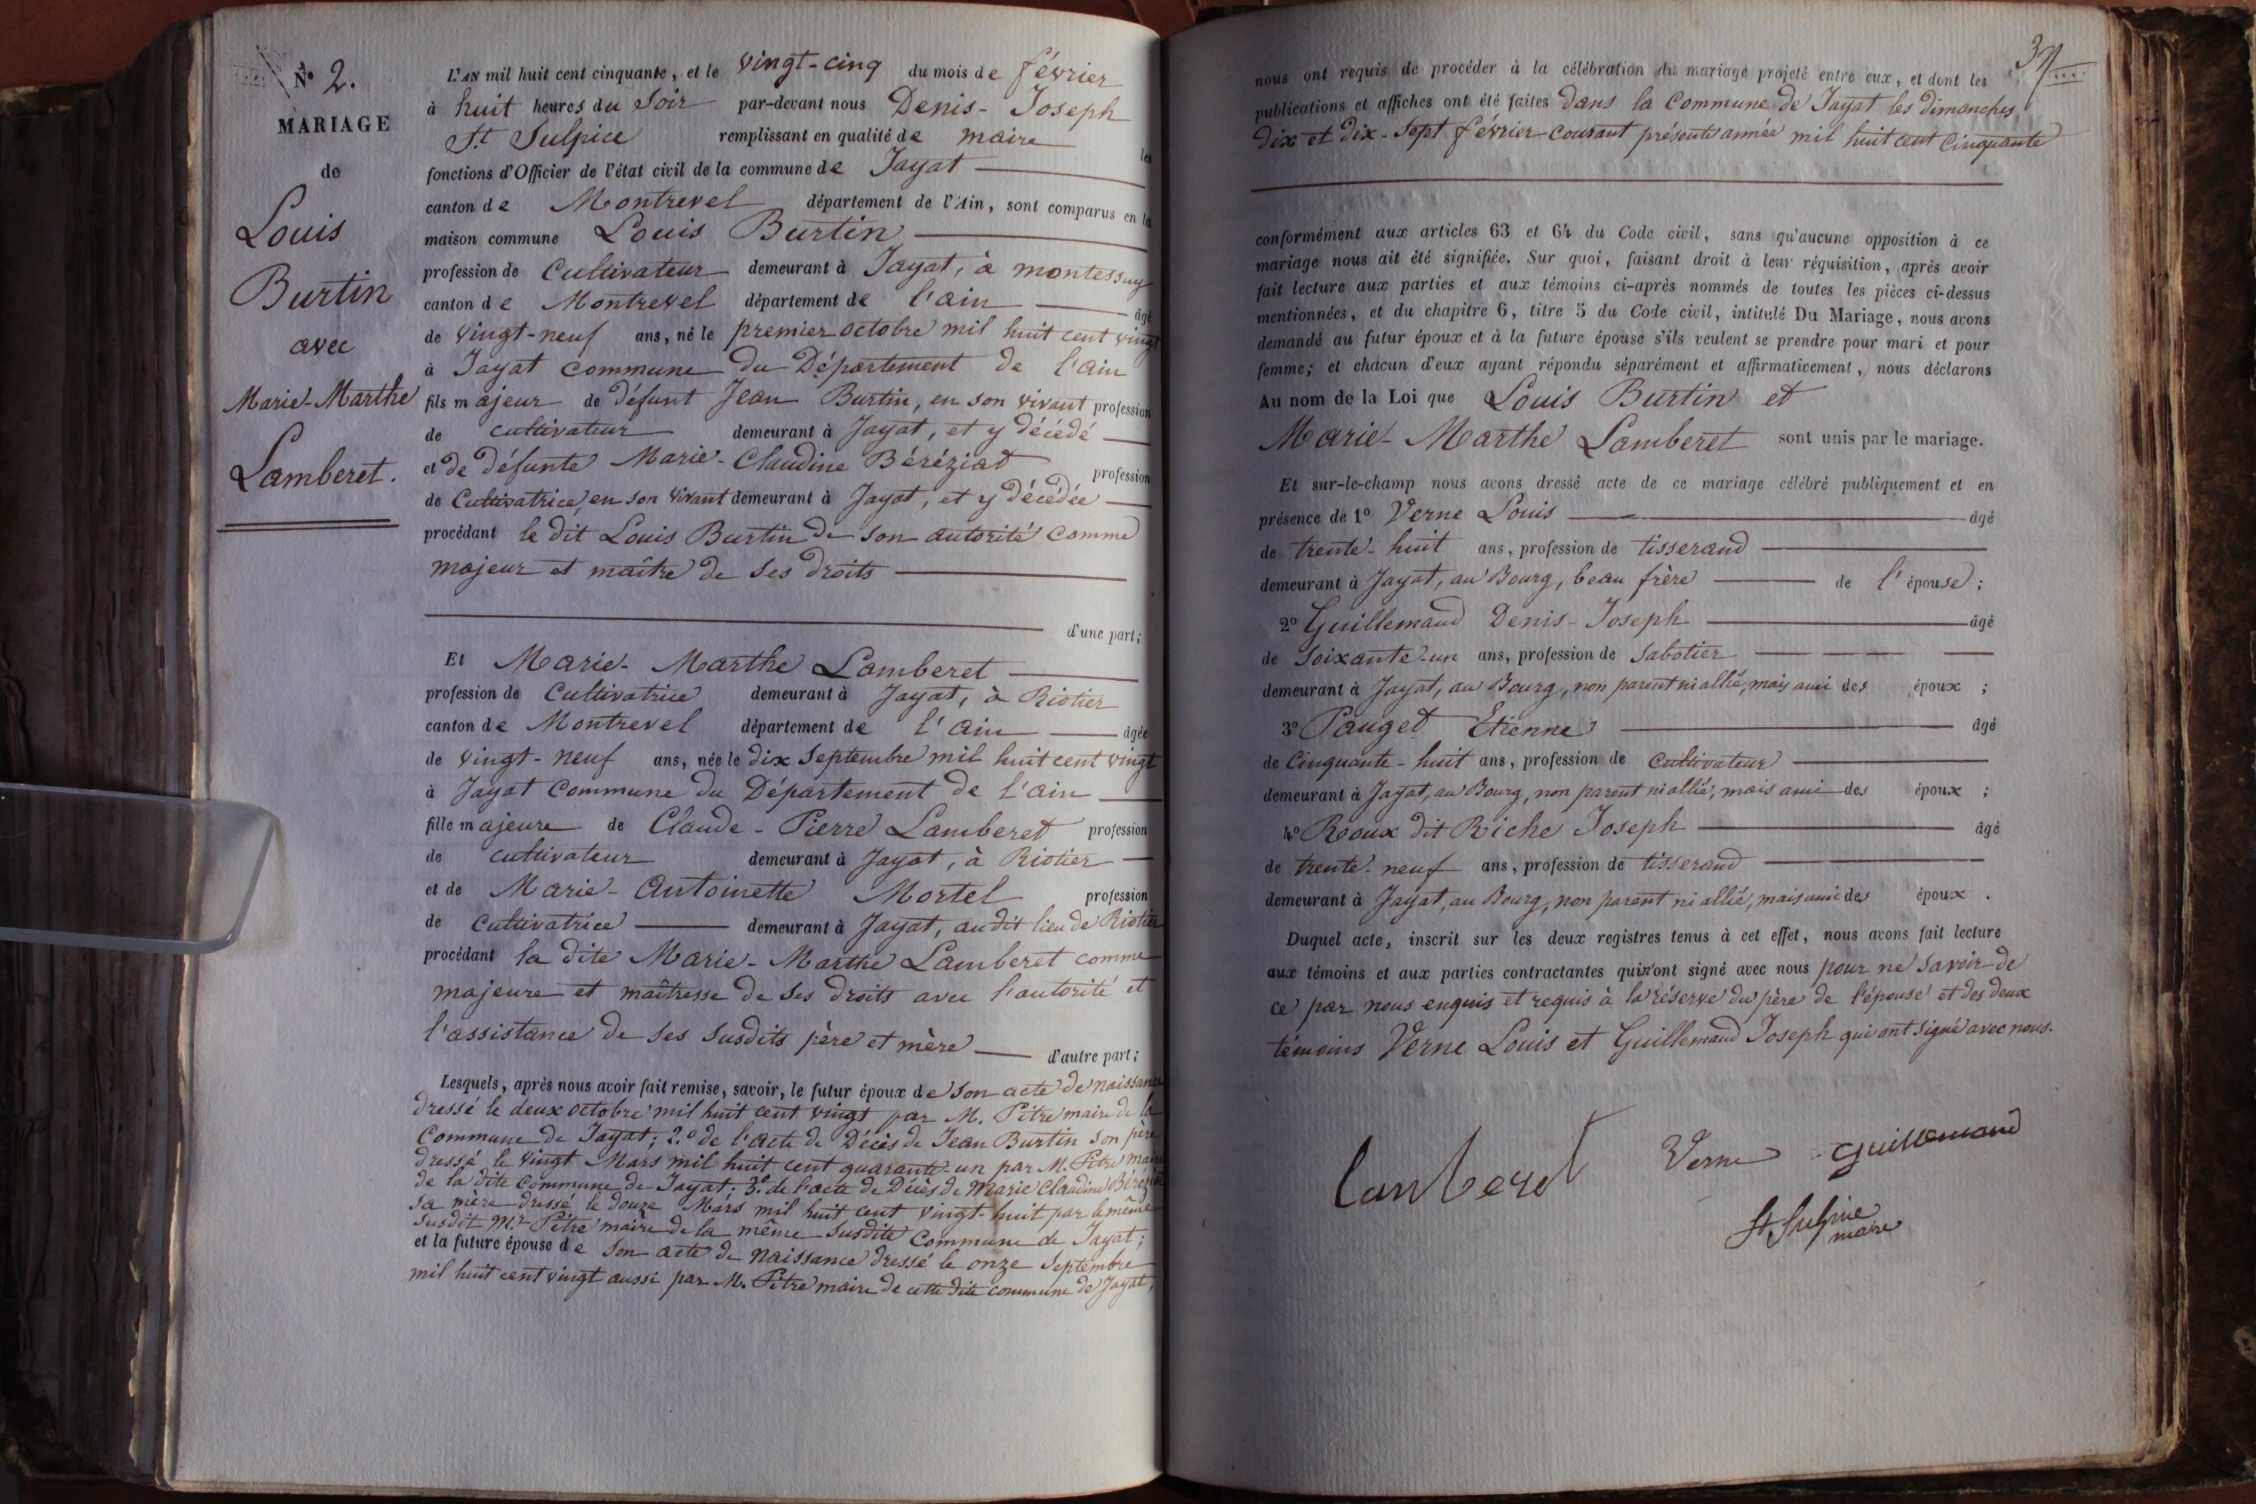 Nº 2.
MARIAGE
de
Louis
Burtin
avec
Marie-Marthe
Lamberet.
L'AN mil huit cent cinquante, et le vingt-cinq du mois de février
à huit heures du soir par-devant nous Denis-Joseph
St Sulpice remplissant en qualité de maire les
fonctions d'Officier de l'état civil de la commune de Jayat
canton de Montrevel département de l'Ain, sont comparus en la
maison commune Louis Burtin
profession de Cultivateur demeurant à Jayat, à montessuy
canton de Montrevel département de l'ain âgé
de vingt-neuf ans, né le premier octobre mil huit cent vingt
à Jayat commune du Département de l'ain
fils majeur de défunt Jean Burtin, en son vivant profession
de cultivateur demeurant à Jayat, et y décédé
et de défunte Marie-Claudine Béréziat profession
de Cultivatrice, en son vivant demeurant à Jayat, et y décédée
procédant le dit Louis Burtin de son autorité comme
majeur et maître de ses droits
d'une part;
Et Marie-Marthe Lamberet
profession de Cultivatrice demeurant à Jayat, à Riotier
canton de Montrevel département de l'ain âgée
de vingt-neuf ans, née le dix septembre mil huit cent vingt
à Jayat Commune du Département de l'ain
fille majeure de Claude-Pierre Lamberet profession
de cultivateur demeurant à Jayat, à Riotier
et de Marie-Antoinette Mortel profession
de cultivatrice demeurant à Jayat, au dit lieu de Riotier
procédant la dite Marie-Marthe Lamberet comme
majeure et maîtresse de ses droits avec l'autorité et
l'assistance de ses susdits père et mère d'autre part;
Lesquels, après nous avoir fait remise, savoir, le futur époux de son acte de naissance
dressé le deux octobre mil huit cent vingt par M. Pitre maire de la
Commune de Jayat; 2.º de l'acte de Décès de Jean Burtin son père
dressé le vingt Mars mil huit cent quarante-un par M. Pitre maire
de la dite commune de Jayat; 3.º de l'acte de Décès de Marie Claudine Béréziat
sa mère dressé le douze Mars mil huit cent vingt-huit par le même
susdit Mr Pitre maire de la même susdite Commune de Jayat;
et la future épouse de son acte de naissance dressé le onze septembre
mil huit cent vingt aussi par M. Pitre maire de cette dite commune de Jayat,
nous ont requis de procéder à la célébration du mariage projeté entre eux, et dont les
publications et affiches ont été faites dans la Commune de Jayat les dimanches
dix et dix-sept février courant présente année mil huit cent cinquante
conformément aux articles 63 et 64 du Code civil, sans qu'aucune opposition à ce
mariage nous ait été signifiée. Sur quoi, faisant droit à leur réquisition, après avoir
fait lecture aux parties et aux témoins ci-après nommés de toutes les pièces ci-dessus
mentionnées, et du chapitre 6, titre 5 du Code civil, intitulé Du Mariage, nous avons
demandé au futur époux et à la future épouse s'ils veulent se prendre pour mari et pour
femme; et chacun d'eux ayant répondu séparément et affirmativement, nous déclarons
Au nom de la Loi que Louis Burtin et
Marie-Marthe Lamberet sont unis par le mariage.
Et sur-le-champ nous avons dressé acte de ce mariage célébré publiquement et en
présence de 1º Verne Louis âgé
de trente-huit ans, profession de tisserand
demeurant à Jayat, au Bourg, beau frère de l'épouse;
2º Guillemaud Denis-Joseph âgé
de soixante-un ans, profession de sabotier
demeurant à Jayat, au Bourg, non parent ni allié, mais ami des époux;
3º Pauget Etienne âgé
de Cinquante-huit ans, profession de cultivateur
demeurant à Jayat, au Bourg, non parent ni allié, mais ami des époux;
4º Roux dit Riche Joseph âgé
de trente-neuf ans, profession de tisserand
demeurant à Jayat, au Bourg, non parent ni allié, mais ami des époux.
Duquel acte, inscrit sur les deux registres tenus à cet effet, nous avons fait lecture
aux témoins et aux parties contractantes qui n'ont signé avec nous pour ne savoir de
ce par nous enquis et requis à la réserve du père de l'épouse et des deux
témoins Verne Louis et Guillemaud Joseph qui ont signé avec nous.
Lamberet Verne Guillemaud
St Sulpice
maire